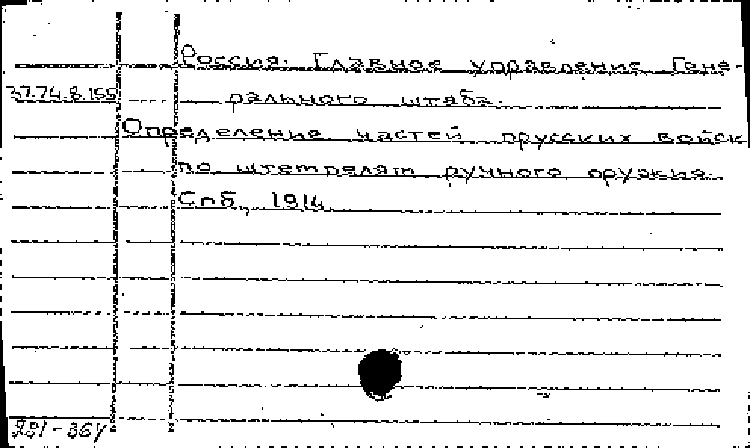 Россия. Главное управление Гене-
37.74.8.155 рального штаба.
Определение частей прусских войск
по штемпелям ручного оружия.
Спб, 1914
291-36/